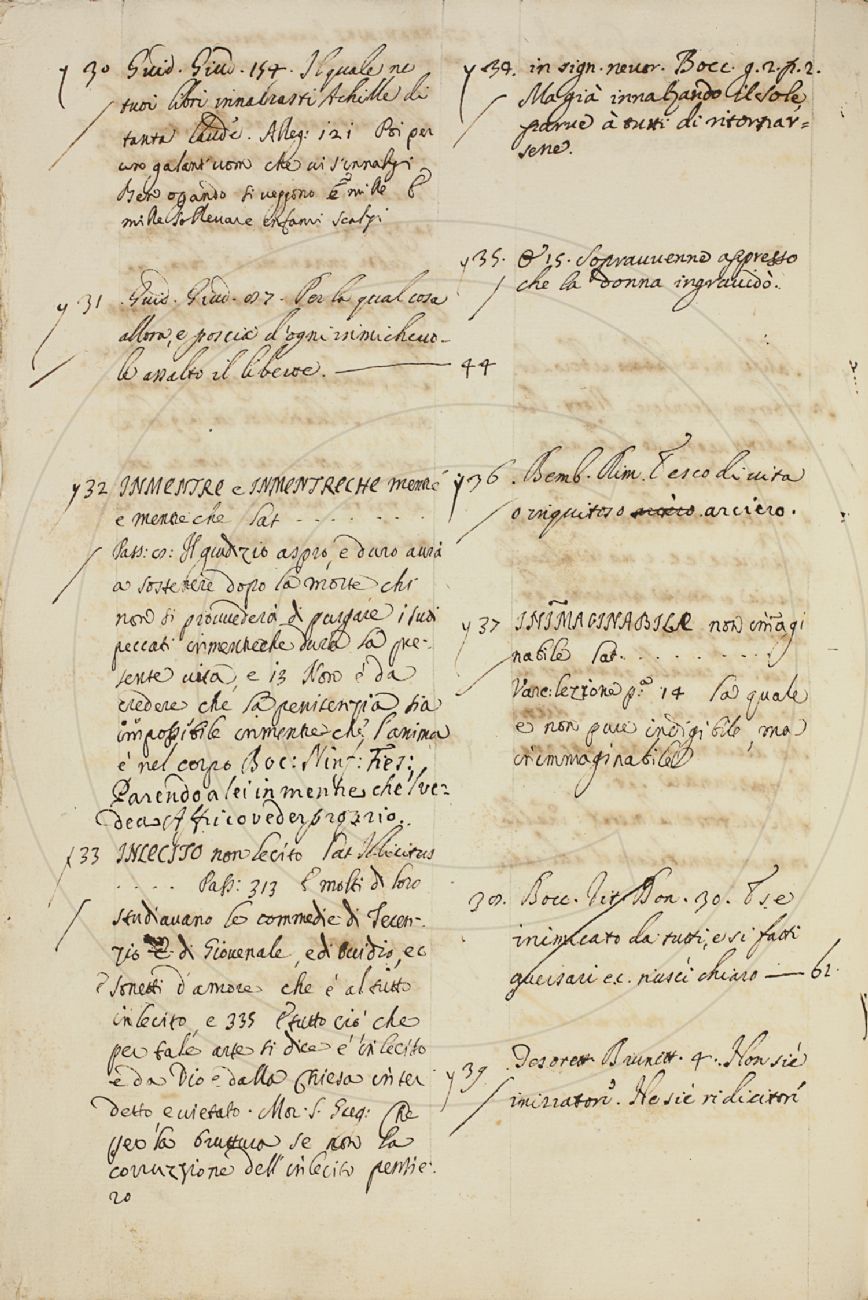 y 30 Guid. Giud. 154. Il quale ne
tuoi libri innalzasti Achille di
tanta laude. Alleg: 121 Poi per
uno galant'uom che ui s'innalzi
Ben ogando si veggono e mille e
mille solleuare enfami scalzi
y 31 Guid. Giud. 87. Per la qual cosa
allora, e poscia d'ogni inimicheuo-
le assalto il liberoe. 44
y 32 INMENTRE e INMENTRECHE mentre
e mentre che Lat . . . . . . . .
Pass: 8: Il giudizio aspro, e duro aurà
a sostenere dopo la morte chi
non si prouuederà di purgare i suoi
peccati inmentreche dura la pre-
sente uita, e 13 Non è da
credere che la penitenzia sia
impossibile inmentre che l'anima
è nel corpo Boc: Ninf: Fies:
Parendo a lei inmentre che'l ve-
dea Affrico veder proprio.
y 33 INLECITO non lecito Lat Illicitus
. . . . . Pass: 313 E molti di loro
studiauano le commedie di Teren-
zio di Giouenale, e di Ouidio, ec
e sonetti d'amore che è al tutto
inlecito, e 335 E tutto ciò che
per tale arte si dice è inlecito
e da Dio e dalla Chiesa inter
detto e uietato. Mor: S. Greg: Che
per la bruttura se non la
corruzzione dell'inlecito pensie:
ro
y 34. in sign. neutr. Bocc. g. 2. p. 2.
Ma già innalzando il sole
parue à tutti di ritornar=
sene.
y 35. & 15. Soprauuenne appresso
che la donna ingrauidò.
y 36. Bemb. Rim. Tesco di uita
o inquitoso arciero.
y 37 INIMMAGINABILE non imagi
nabile Lat. . . . . . . . .
Varc: lezione p.^a 14 La quale
e non pure indigibile, ma
inimmaginabile
38. Bocc. Vit. Dan. 30. E s. e
inimicato da tutti, e si fatti
guerisari ec. riuscì chiaro — 62.
y 39. Tesorett. Brunett. 4. Non sie
inizzatori. Ne sie ridicitori